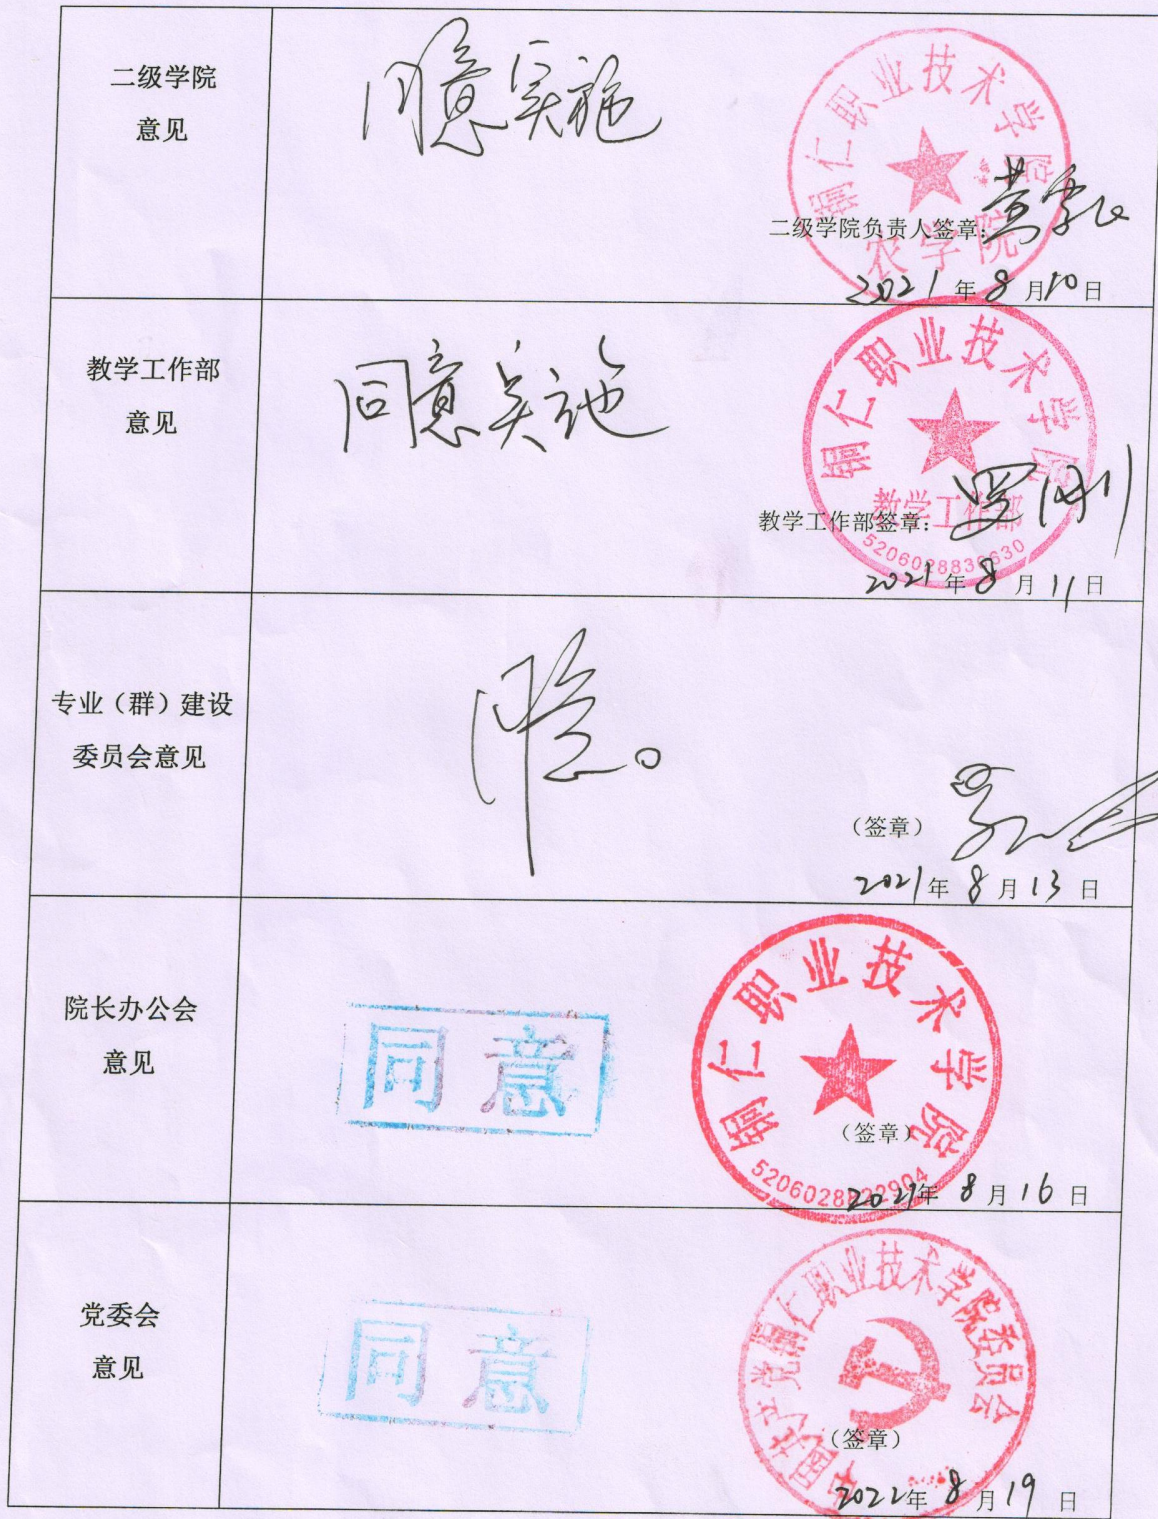 二级学院
意见
同意实施
铜仁职业技术学院
农学院
二级学院负责人签章:
2021年8月10日
教学工作部
意见
同意实施
铜仁职业技术学院
教学工作部
5206028836630
教学工作部签章:
罗刚
2021年8月11日
专业（群）建设
委员会意见
同意。
（签章）
2021年8月13日
院长办公会
意见
同意
铜仁职业技术学院
5206028822904
（签章）
2021年8月16日
党委会
意见
同意
中国共产党铜仁职业技术学院委员会
（签章）
2022年8月19日